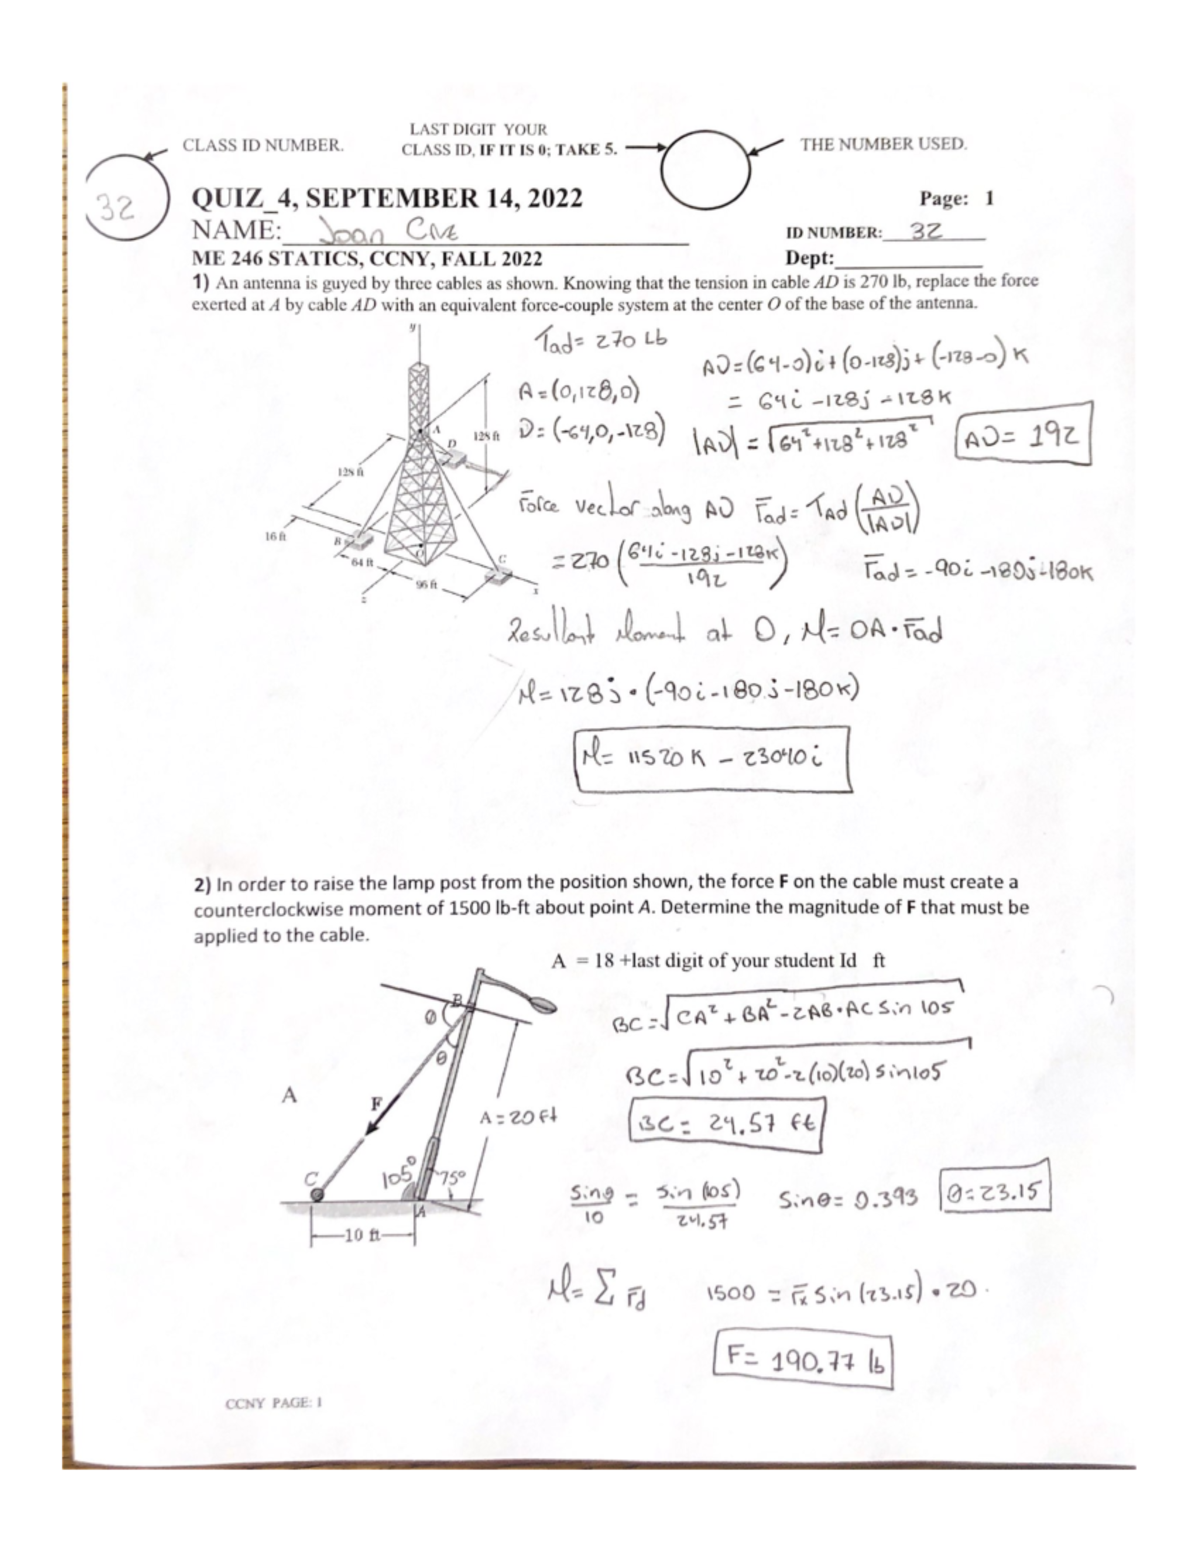 LAST DIGIT YOUR
CLASS ID NUMBER.
CLASS ID, IF IT IS 0; TAKE 5.
THE NUMBER USED.
32
QUIZ_4, SEPTEMBER 14, 2022
Page: 1
NAME: Joan
ID NUMBER: 32
ME 246 STATICS, CCNY, FALL 2022
Dept:
1) An antenna is guyed by three cables as shown. Knowing that the tension in cable AD is 270 lb, replace the force
exerted at A by cable AD with an equivalent force-couple system at the center O of the base of the antenna.
y
Tad= 270 Lb
AD=(64-0)i+(0-128)j+(-128-0)K
A=(0,128,0)
= 64i -128j -128K
D=(-64,0,-128)
|AD| = √64²+128²+128²
AD= 192
A
D
128 ft
128 ft
16 ft
B
64 ft
O
C
96 ft
x
z
Force vector along AD Fad= TAd (AD/|AD|)
=270 (64i-128j-128K/192)
Fad=-90i-180j-180K
Resultant Moment at O, M= OA•Fad
M=128j•(-90i-180j-180K)
M= 11520K - 23040i
2) In order to raise the lamp post from the position shown, the force F on the cable must create a
counterclockwise moment of 1500 lb-ft about point A. Determine the magnitude of F that must be
applied to the cable.
A = 18 +last digit of your student Id ft
B
Ø
θ
BC=√CA²+BA²-2AB•AC Sin 105
BC=√10²+20²-2(10)(20) sin105
BC= 24.57 ft
A
F
A=20Ft
C
105°
75°
A
10 ft
Sinθ/10 = Sin (105)/24.57
Sinθ= 0.393
θ=23.15
M= Σ Fd
1500 = Fx Sin (23.15)•20
F= 190.77 lb
CCNY PAGE: 1